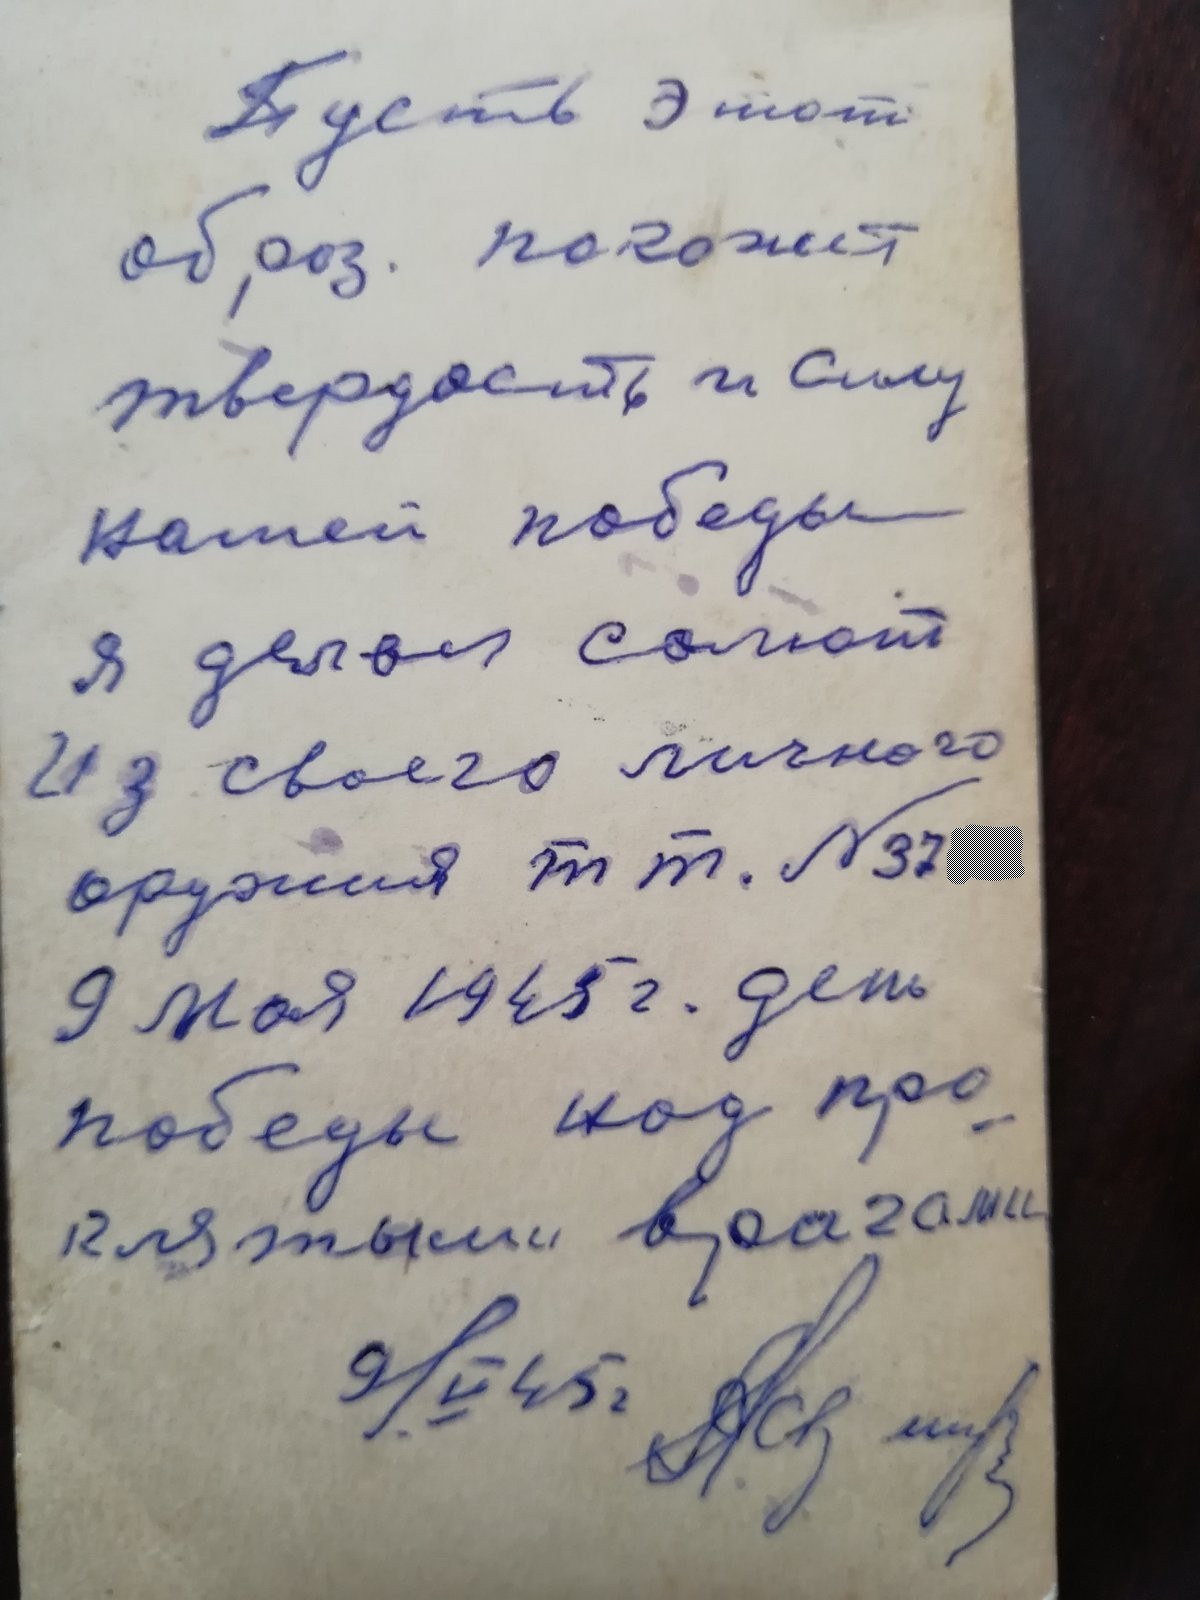 Пусть этот
образ. покажет
твердость и силу
нашей победы
я делаю салют
Из своего личного
оружия тт. N 37
9 Мая 1945 г. день
победы над про-
клятыми врагами
9/V 45 г